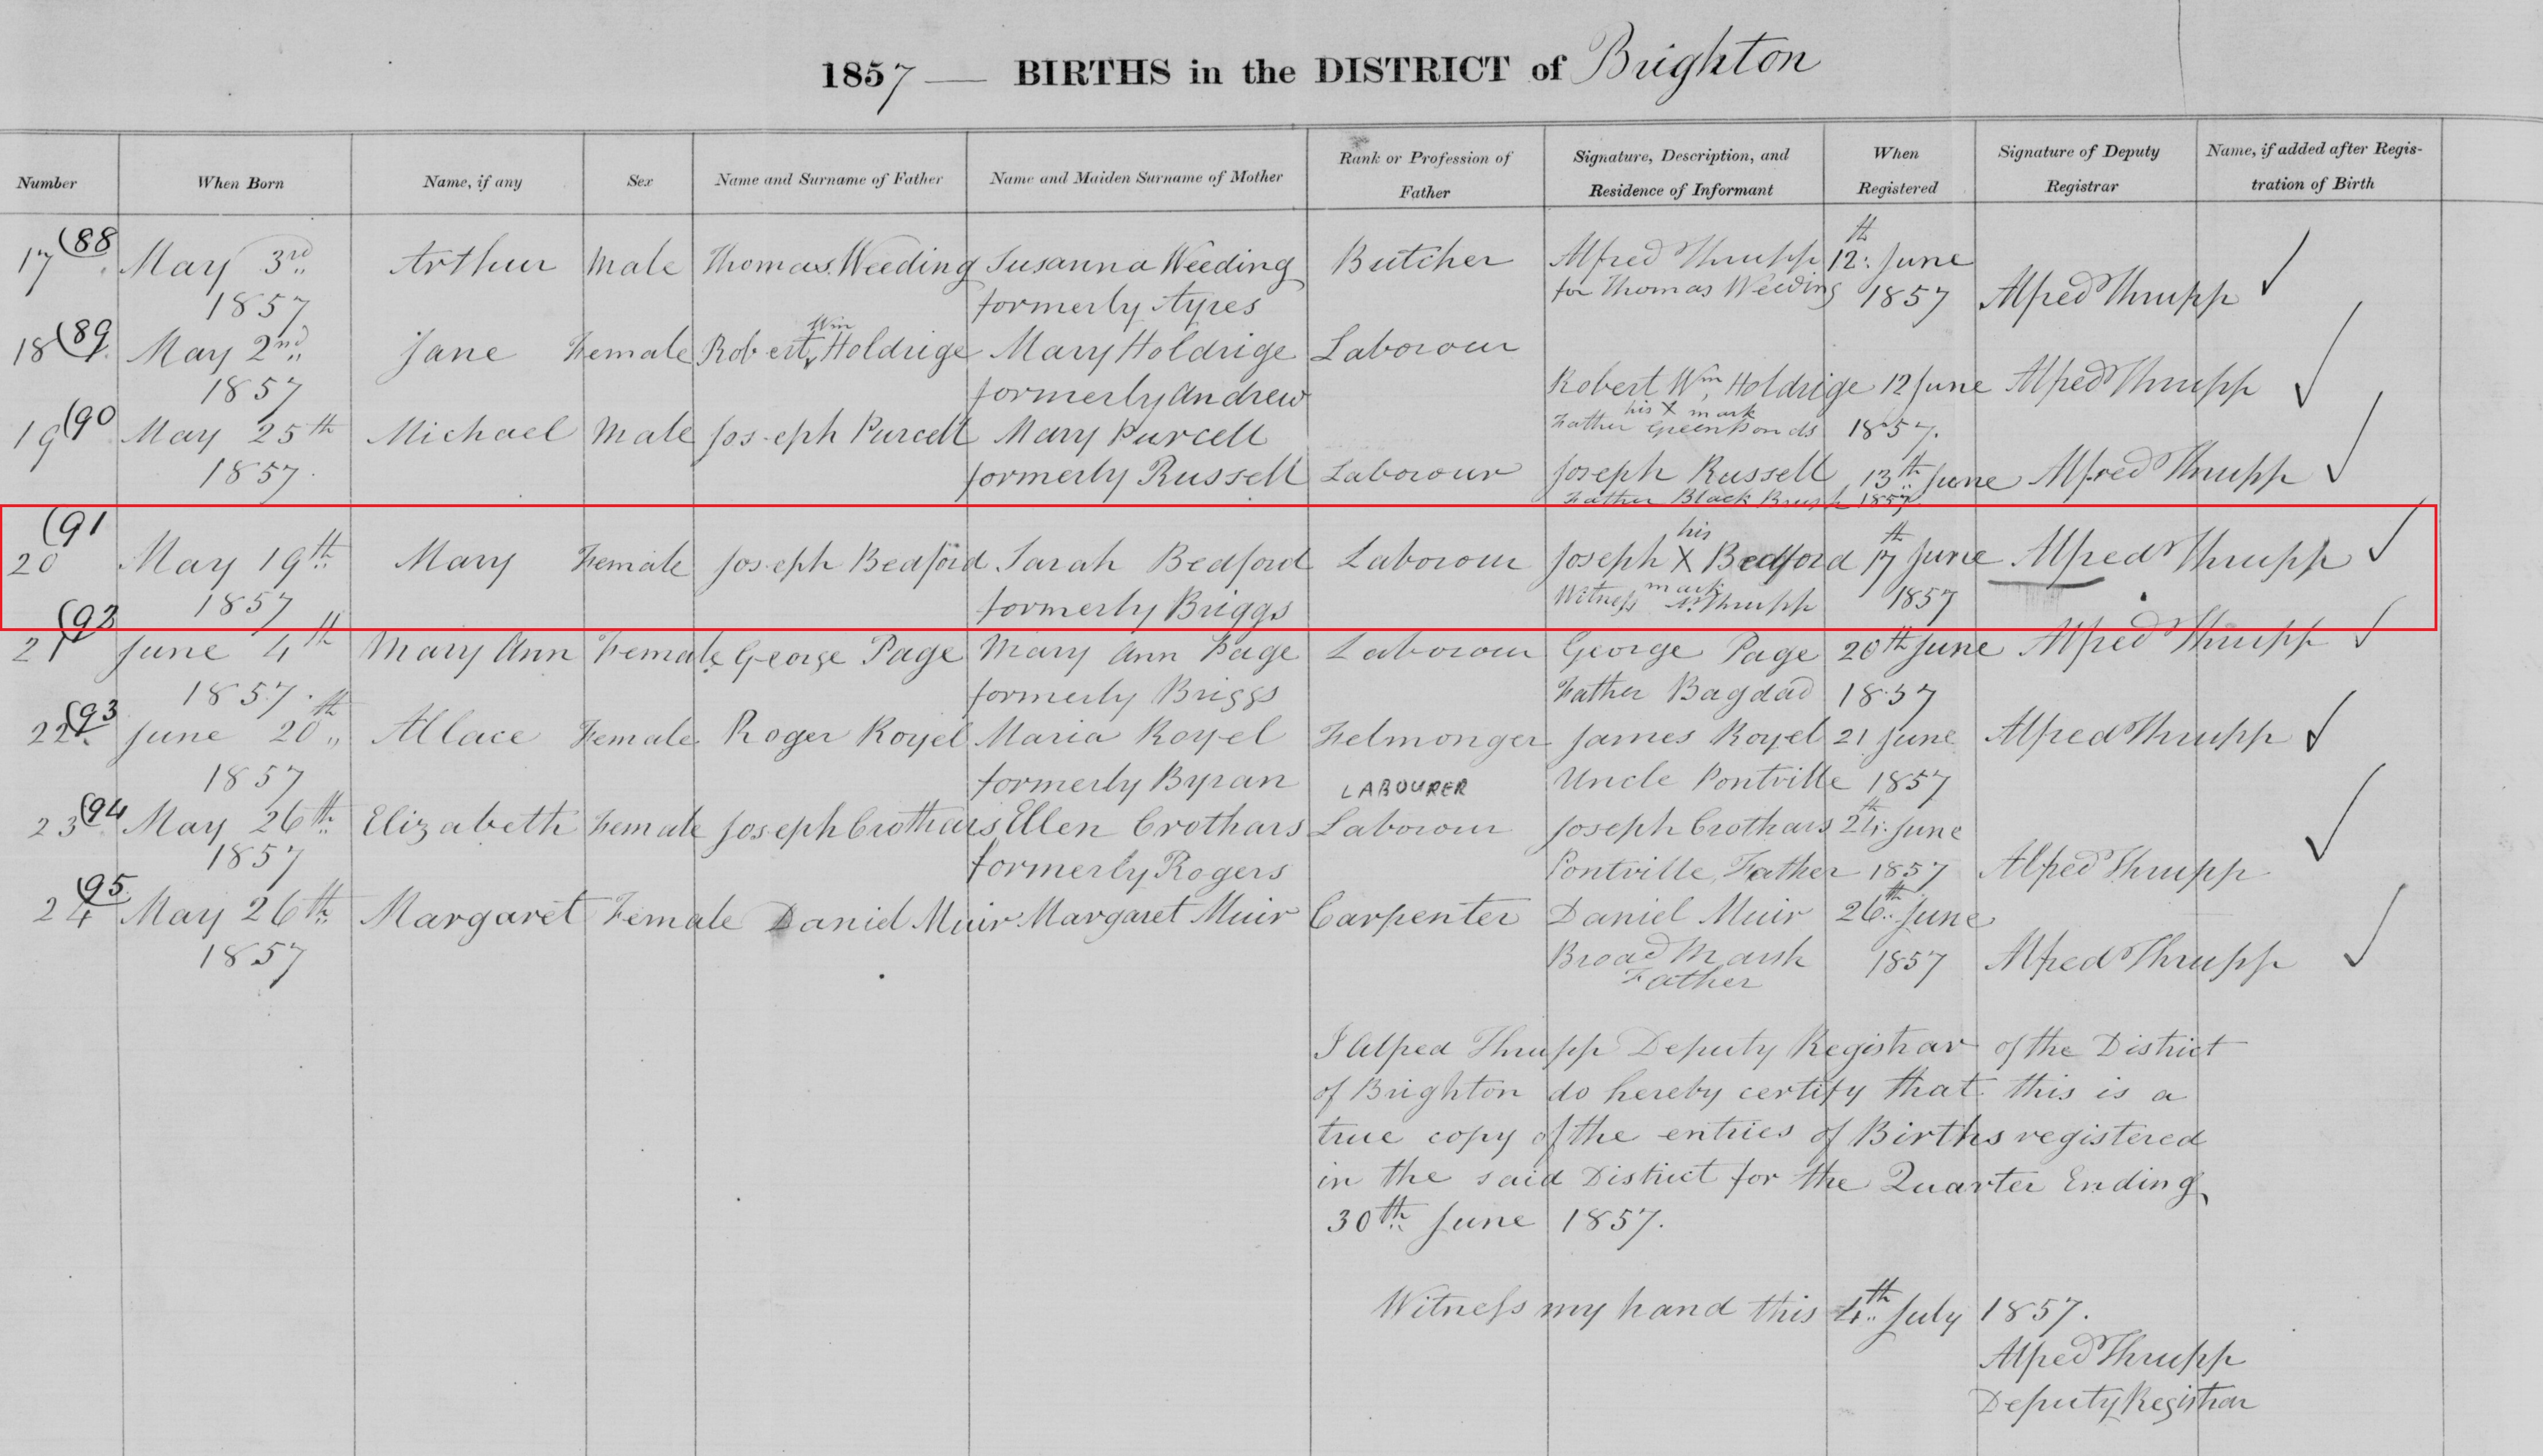 1857 — BIRTHS in the DISTRICT of Brighton
Number When Born Name, if any Sex Name and Surname of Father Name and Maiden Surname of Mother Rank or Profession of Father Signature, Description, and Residence of Informant When Registered Signature of Deputy Registrar Name, if added after Registration of Birth
17 (88 May 3rd Arthur Male Thomas Weeding Susanna Weeding Butcher Alfred Thrupp 12th June
1857 formerly Ayres for Thomas Weeding 1857 Alfred Thrupp ✓
18 (89 May 2nd Jane Female Robert Wm Holdrige Mary Holdrige Laborour
1857 formerly Andrew Robert Wm Holdrige 12 June Alfred Thrupp ✓
his X mark
19 (90 May 25th Michael Male Joseph Purcell Mary Purcell Father Greenponds 1857.
1857. formerly Russell Laborour Joseph Russell 13th June Alfred Thrupp ✓
Father Black Brush 1857
20 (91 May 19th Mary Female Joseph Bedford Sarah Bedford Laborour Joseph his X mark Bedford 17th June Alfred Thrupp ✓
1857 formerly Briggs Witness A. Thrupp 1857
21 (92 June 4th Mary Ann Female George Page Mary Ann Page Laborour George Page 20th June Alfred Thrupp ✓
1857. formerly Briggs Father Bagdad 1857
22 (93 June 20th Allace Female Roger Royel Maria Royel Felmonger James Royel 21 June Alfred Thrupp ✓
1857 formerly Byran Uncle Pontville 1857
LABOURER
23 (94 May 26th Elizabeth Female Joseph Crothars Ellen Crothars Laborour Joseph Crothars 24th June
1857 formerly Rogers Pontville Father 1857 Alfred Thrupp ✓
24 (95 May 26th Margaret Female Daniel Muir Margaret Muir Carpenter Daniel Muir 26th June
1857 Broad Marsh 1857 Alfred Thrupp ✓
Father
I Alfred Thrupp Deputy Registrar of the District
of Brighton do hereby certify that this is a
true copy of the entries of Births registered
in the said District for the Quarter Ending
30th June 1857.
Witness my hand this 4th July 1857.
Alfred Thrupp
Deputy Registrar